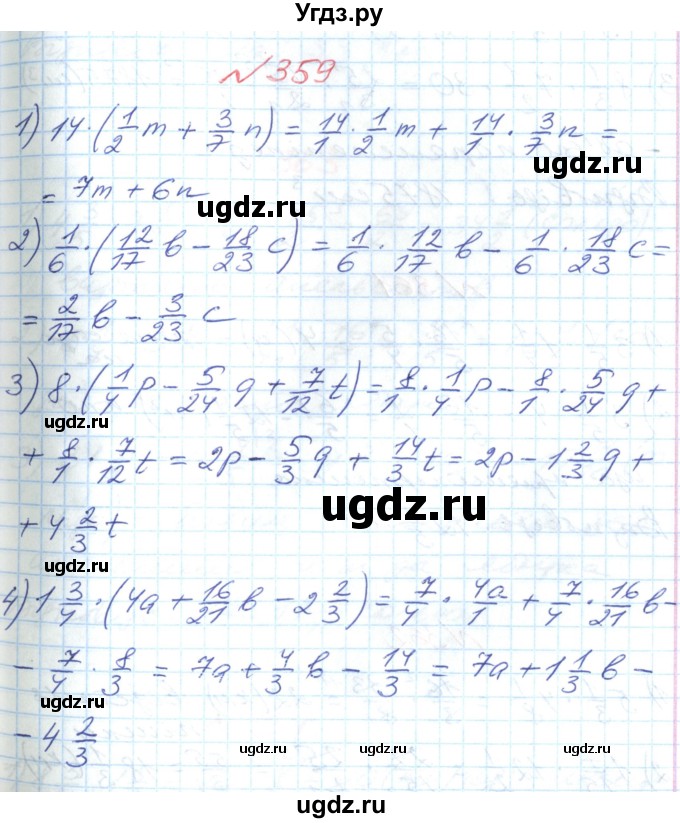 Угдз.ру
№359
1) 14·(1/2 m + 3/7 n) = 14/1 · 1/2 m + 14/1 · 3/7 n =
ugdz.ru
= 7m + 6n
ugdz.ru
2) 1/6 ·(12/17 b − 18/23 c) = 1/6 · 12/17 b − 1/6 · 18/23 c =
ugdz.ru ugdz.ru
= 2/17 b − 3/23 c
3) 8·(1/4 p − 5/24 q + 7/12 t) = 8/1 · 1/4 p − 8/1 · 5/24 q +
ugdz.ru ugdz.ru
+ 8/1 · 7/12 t = 2p − 5/3 q + 14/3 t = 2p − 1 2/3 q +
ugdz.ru
+ 4 2/3 t
ugdz.ru
4) 1 3/4 ·(4a + 16/21 b − 2 2/3) = 7/4 · 4a/1 + 7/4 · 16/21 b −
ugdz.ru
− 7/4 · 8/3 = 7a + 4/3 b − 14/3 = 7a + 1 1/3 b −
ugdz.ru
− 4 2/3
ugdz.ru ugdz.ru ugdz.ru
ugdz.ru